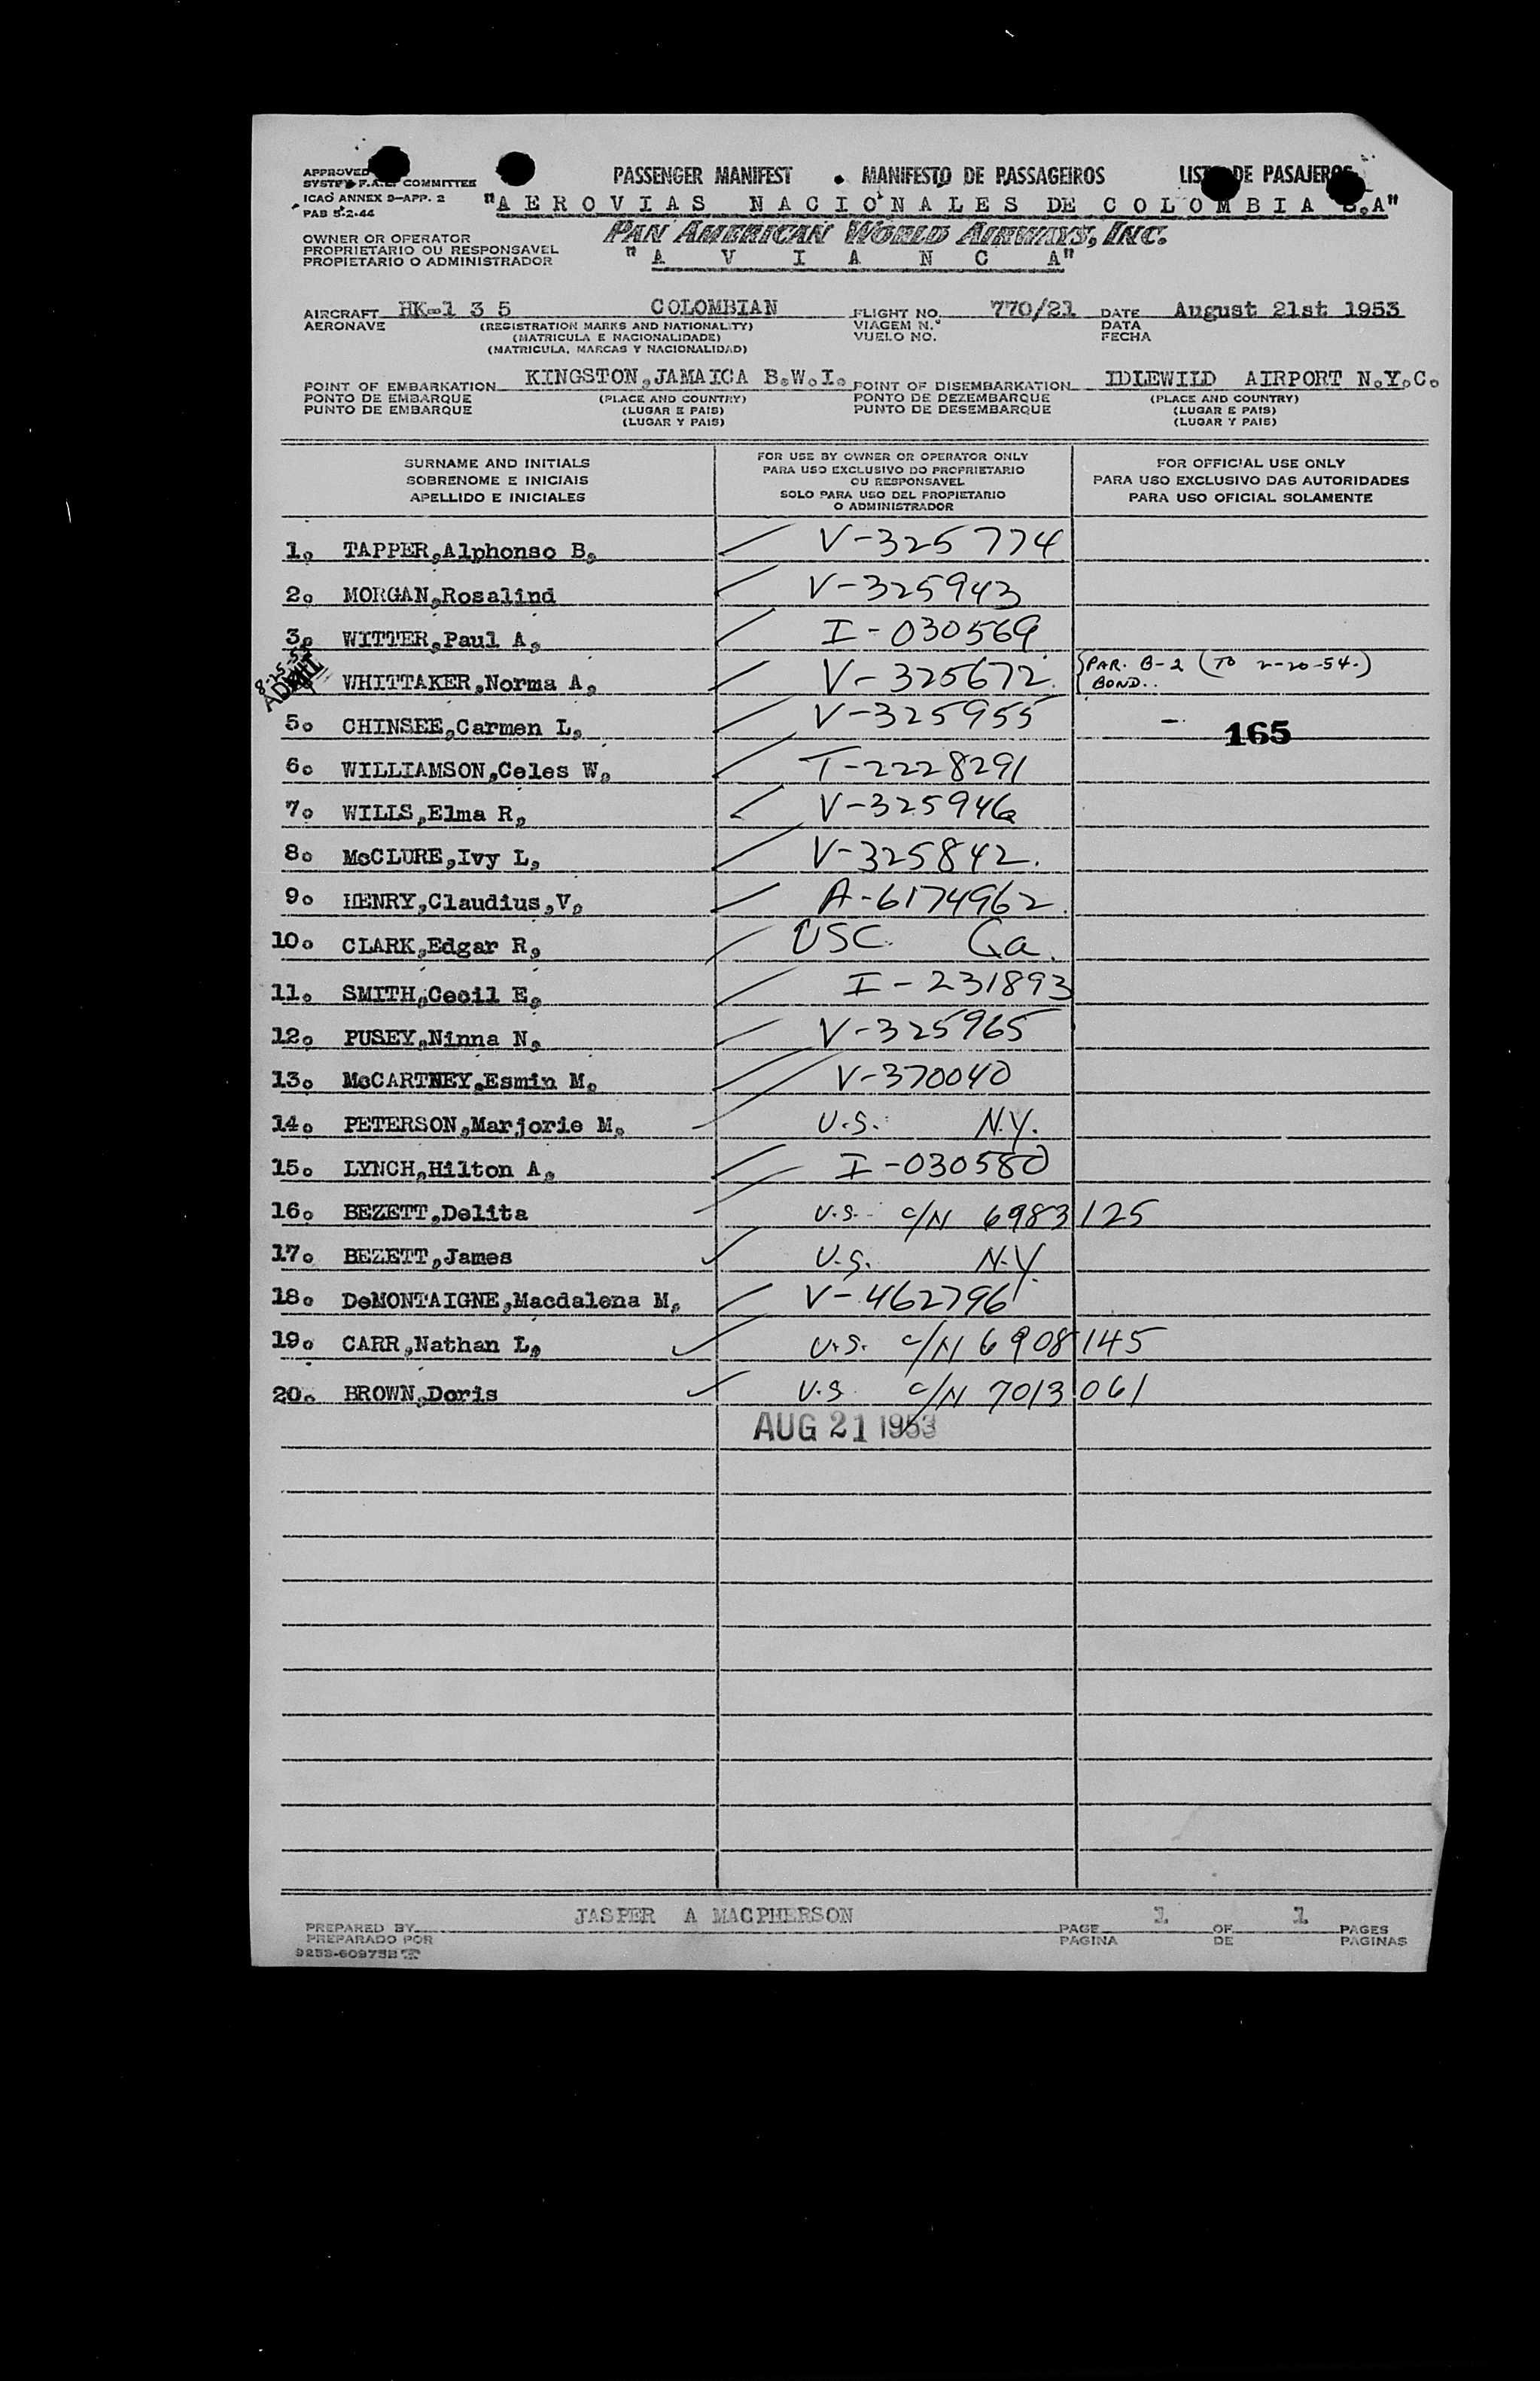 APPROVED
SYSTEM F.A.L. COMMITTEE
ICAO ANNEX 9-APP. 2
PAB 5-2-44
PASSENGER MANIFEST • MANIFESTO DE PASSAGEIROS LISTA DE PASAJEROS
"AEROVIAS NACIONALES DE COLOMBIA S.A"
OWNER OR OPERATOR
PROPRIETARIO OU RESPONSAVEL
PROPIETARIO O ADMINISTRADOR
PAN AMERICAN WORLD AIRWAYS, INC.
"A V I A N C A"
AIRCRAFT HK-1 3 5 COLOMBIAN FLIGHT NO. 770/21 DATE August 21st 1953
AERONAVE (REGISTRATION MARKS AND NATIONALITY) VIAGEM N.º DATA
(MATRICULA E NACIONALIDADE) VUELO NO. FECHA
(MATRICULA, MARCAS Y NACIONALIDAD)
POINT OF EMBARKATION KINGSTON,JAMAICA B.W.I. POINT OF DISEMBARKATION IDLEWILD AIRPORT N.Y.C.
PONTO DE EMBARQUE (PLACE AND COUNTRY) PONTO DE DEZEMBARQUE (PLACE AND COUNTRY)
PUNTO DE EMBARQUE (LUGAR E PAIS) PUNTO DE DESEMBARQUE (LUGAR E PAIS)
(LUGAR Y PAIS) (LUGAR Y PAIS)
SURNAME AND INITIALS
SOBRENOME E INICIAIS
APELLIDO E INICIALES
FOR USE BY OWNER OR OPERATOR ONLY
PARA USO EXCLUSIVO DO PROPRIETARIO
OU RESPONSAVEL
SOLO PARA USO DEL PROPIETARIO
O ADMINISTRADOR
FOR OFFICIAL USE ONLY
PARA USO EXCLUSIVO DAS AUTORIDADES
PARA USO OFICIAL SOLAMENTE
1. TAPPER,Alphonso B. V-325774
2. MORGAN,Rosalind V-325943
3. WITTER,Paul A. I-030569
ADMIT WHITTAKER,Norma A. V-325672 PAR. B-2 (TO 2-20-54.)
BOND..
5. CHINSEE,Carmen L. V-325955 - 165
6. WILLIAMSON,Celes W. T-2228291
7. WILLS,Elma R. V-325946
8. McCLURE,Ivy L. V-325842.
9. HENRY,Claudius,V. A-6174962.
10. CLARK,Edgar R. USC. Ga.
11. SMITH,Cecil E. I-231893
12. PUSEY,Ninna N. V-325965
13. McCARTNEY,Esmin M. V-370040
14. PETERSON,Marjorie M. U.S. N.Y.
15. LYNCH,Hilton A. I-030580
16. BEZETT,Delita U.S. C/N 6983125
17. BEZETT,James U.S. N.Y.
18. DeMONTAIGNE,Macdalena M. V-462796
19. CARR,Nathan L. U.S. C/N 6908145
20. BROWN,Doris U.S. C/N 7013061
AUG 21 1953
PREPARED BY JASPER A MACPHERSON PAGE 1 OF 1 PAGES
PREPARADO POR PAGINA DE PAGINAS